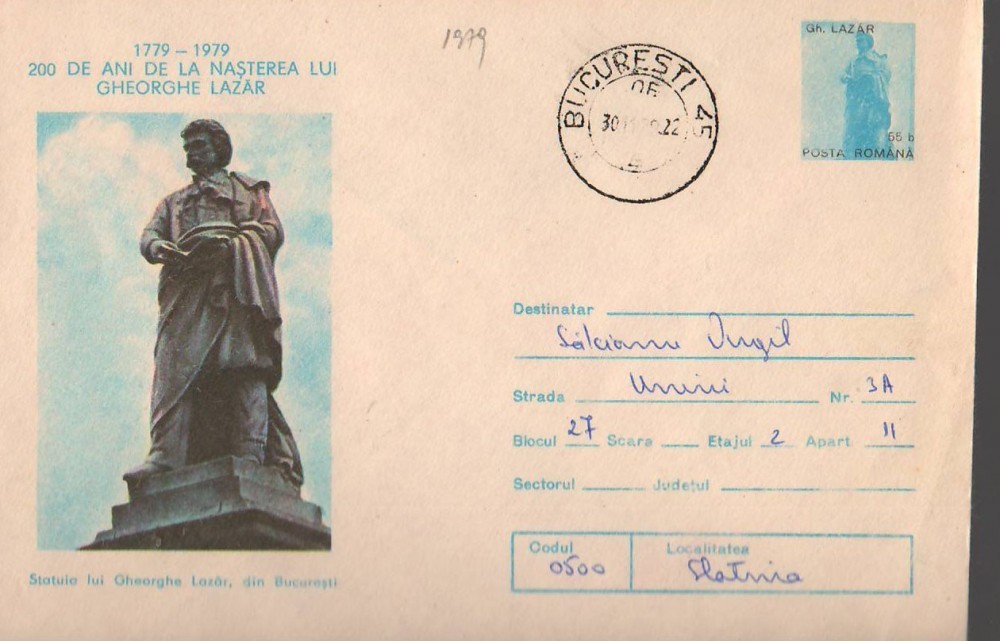 1779 – 1979
200 DE ANI DE LA NAȘTEREA LUI
GHEORGHE LAZĂR
1979
BUCUREȘTI 45
OF
30
22
Gh. LAZĂR
55 b
POSTA ROMÂNĂ
Destinatar
Sălcianu Virgil
Strada Unirii Nr. 3A
Blocul 27 Scara Etajul 2 Apart. 11
Sectorul Județul
Codul Localitatea
0500 Slatina
Statuia lui Gheorghe Lazăr, din București